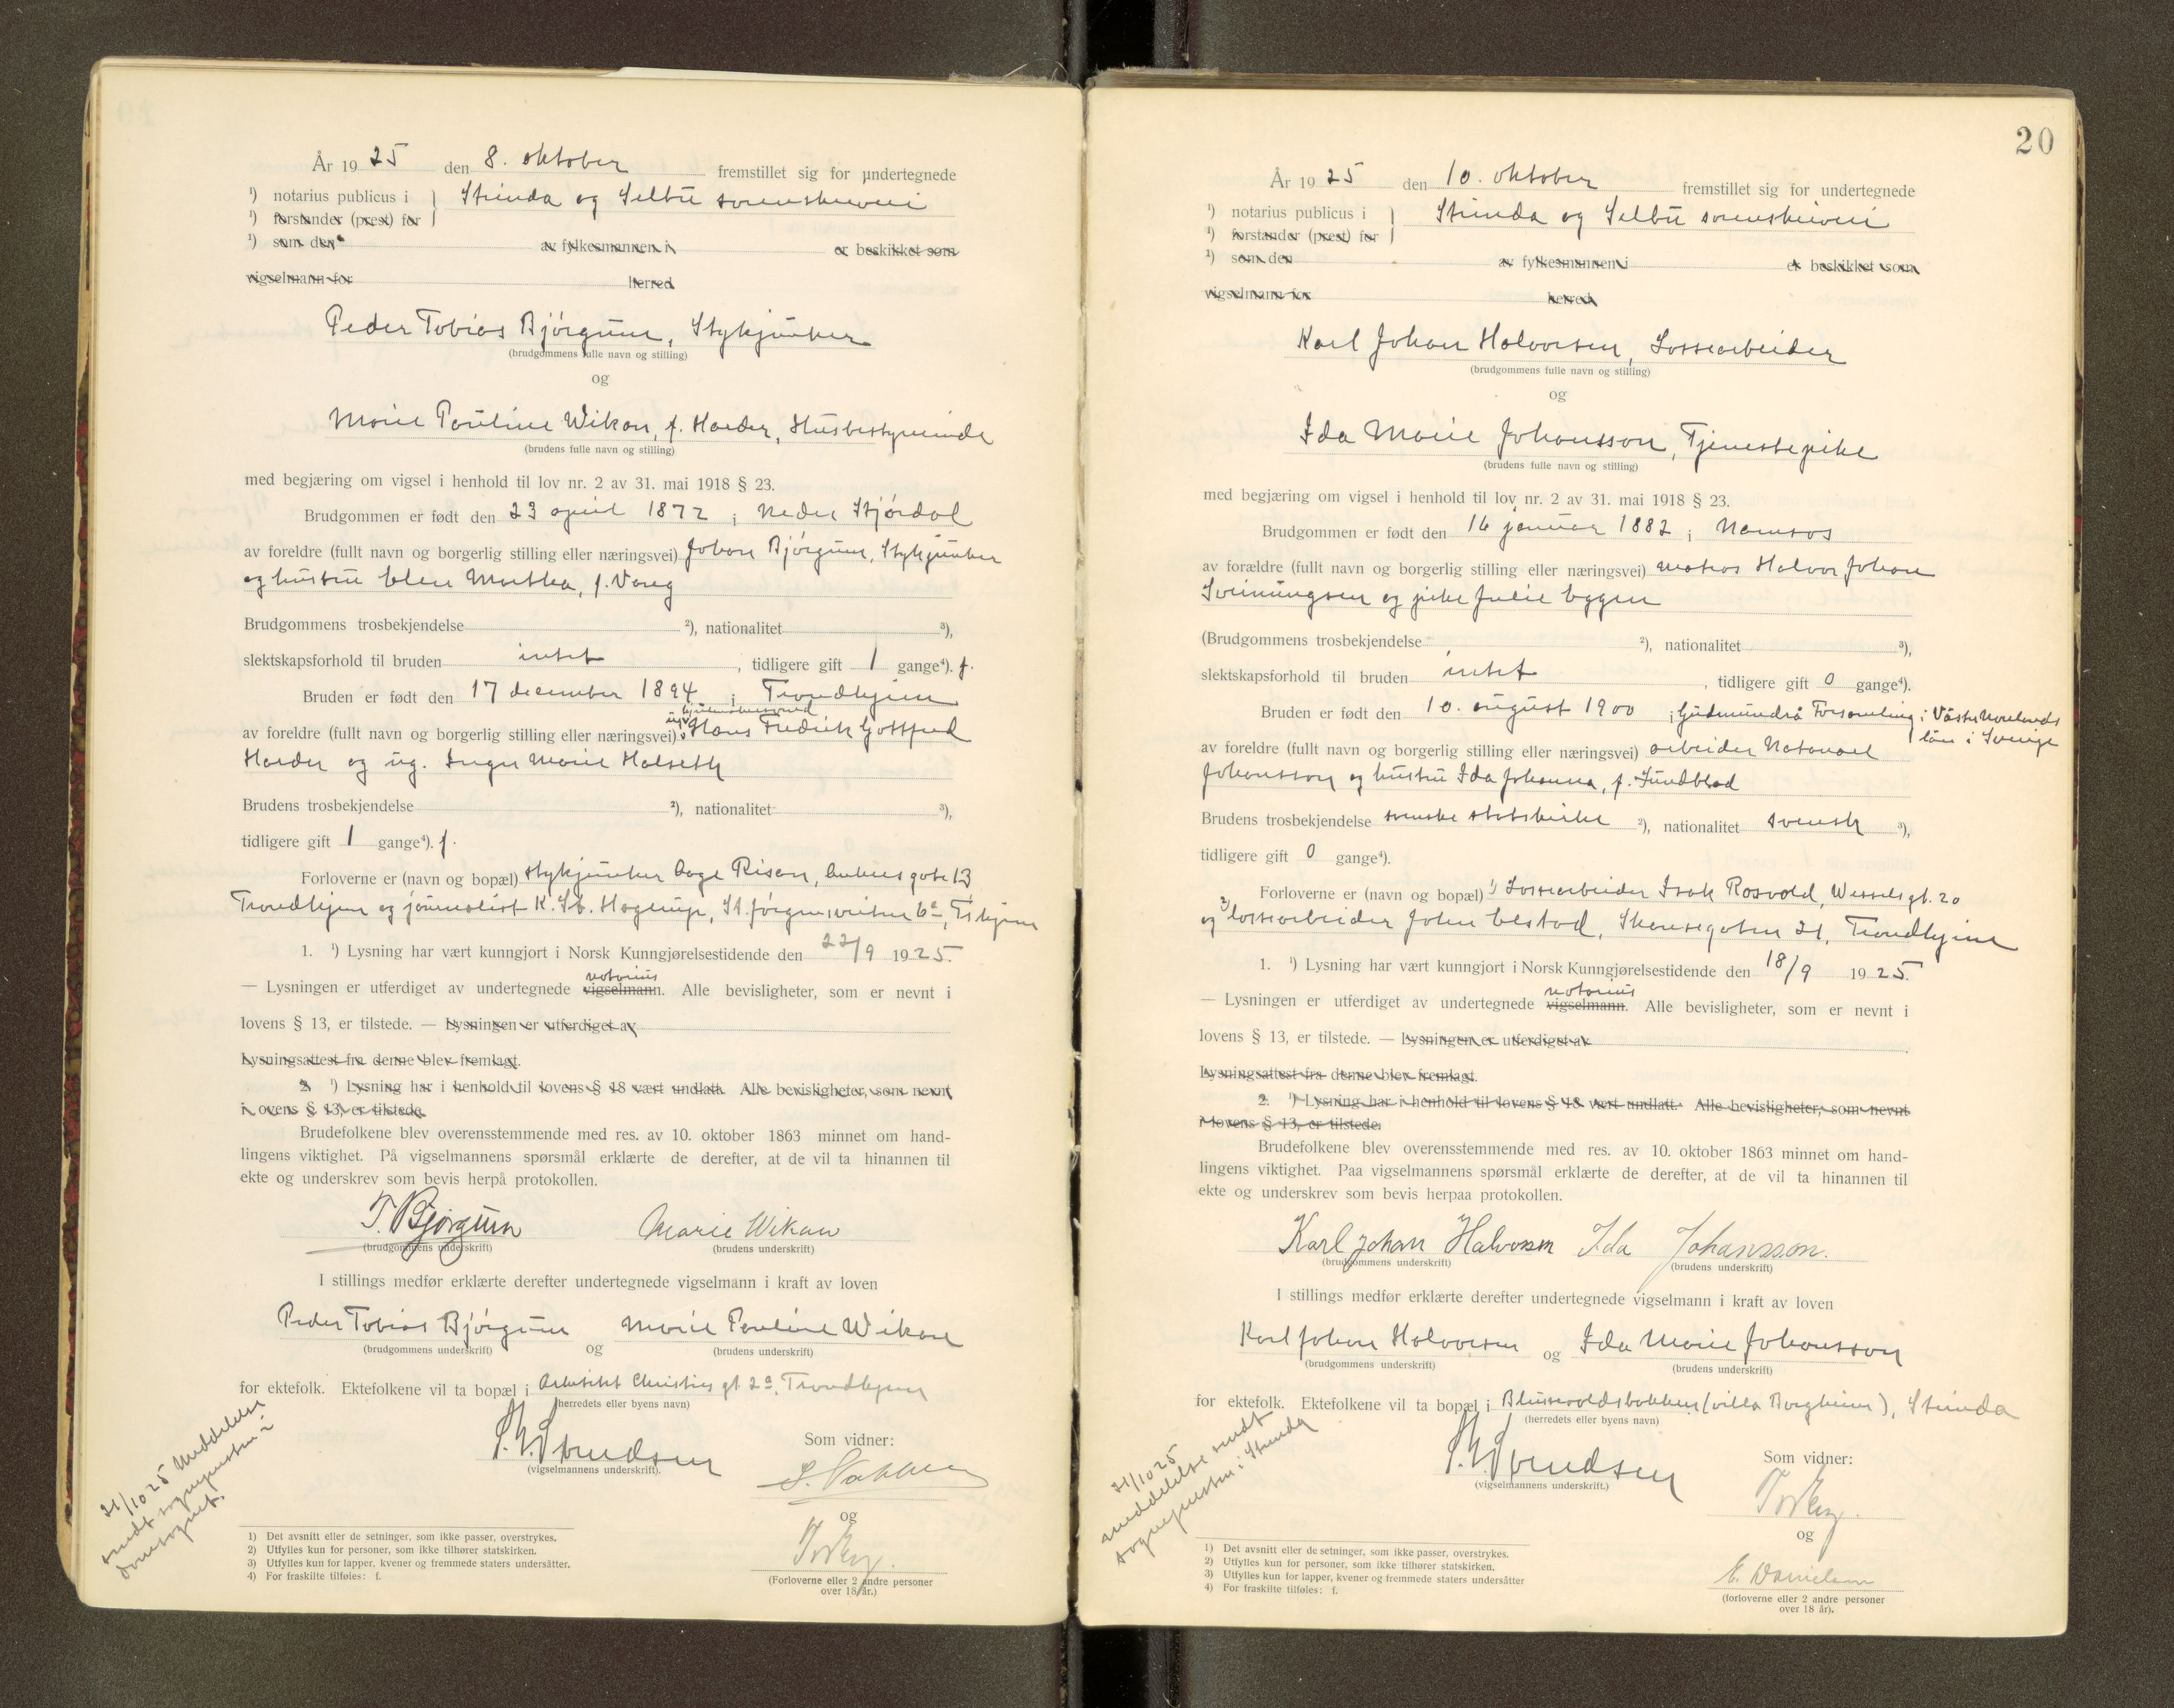 År 1925 den 8. oktober fremstillet sig for undertegnede
¹) notarius publicus i } Strinda og Selbu sorenskriveri
¹) forstander (prest) for
¹) som den av fylkesmannen i er beskikket som
vigselmann for herred
Peder Tobias Bjørgum, Stykjunker
(brudgommens fulle navn og stilling)
og
Marie Pauline Wikan, f. Harder, Husbestyrerinde
(brudens fulle navn og stilling)
med begjæring om vigsel i henhold til lov nr. 2 av 31. mai 1918 § 23.
Brudgommen er født den 23 april 1872 i Nedre Stjørdal
av foreldre (fullt navn og borgerlig stilling eller næringsvei) Johan Bjørgum, Stykjunker
og hustru Elen Martha, f.
Brudgommens trosbekjendelse ²), nationalitet ³),
slektskapsforhold til bruden intet, tidligere gift 1 gange⁴). f.
Bruden er født den 17 december 1894 i Trondhjem
av foreldre (fullt navn og borgerlig stilling eller næringsvei) Hans Fredrik Gottfred
Harder og ug. Inger Marie Halseth
Brudens trosbekjendelse ²), nationalitet ³),
tidligere gift 1 gange⁴). f.
Forloverne er (navn og bopæl) stykjunker Aage Risan, gate 13
Trondhjem og journalist K. St. Hagerup, St. Jørgensveiten 6a, Tr.hjem
1. ¹) Lysning har vært kunngjort i Norsk Kunngjørelsestidende den 22/9 1925.
notarius
— Lysningen er utferdiget av undertegnede vigselmann. Alle bevisligheter, som er nevnt i
lovens § 13, er tilstede. — Lysningen er utferdiget av
Lysningsattest fra denne blev fremlagt.
2. ¹) Lysning har i henhold til lovens § 18 vært undlatt. Alle bevisligheter, som nevnt
i lovens § 13, er tilstede.
Brudefolkene blev overensstemmende med res. av 10. oktober 1863 minnet om hand-
lingens viktighet. På vigselmannens spørsmål erklærte de derefter, at de vil ta hinannen til
ekte og underskrev som bevis herpå protokollen.
T. Bjørgum Marie Wikan
(brudgommens underskrift) (brudens underskrift)
I stillings medfør erklærte derefter undertegnede vigselmann i kraft av loven
Peder Tobias Bjørgum og Marie Pauline Wikan
(brudgommens underskrift) (brudens underskrift)
for ektefolk. Ektefolkene vil ta bopæl i Arkitekt Christies gt 2a, Trondhjem
(herredets eller byens navn)
(vigselmannens underskrift).
Som vidner:
og
(Forloverne eller 2 andre personer
over 18 år.)
21/10 25 Meddelelse
sendt sognepresten i
domsognet.
1) Det avsnitt eller de setninger, som ikke passer, overstrykes.
2) Utfylles kun for personer, som ikke tilhører statskirken.
3) Utfylles kun for lapper, kvener og fremmede staters undersåtter.
4) For fraskilte tilføies: f.
20
År 1925 den 10. oktober fremstillet sig for undertegnede
¹) notarius publicus i } Strinda og Selbu sorenskriveri
¹) forstander (prest) for
¹) som den av fylkesmannen i er beskikket som
vigselmann for herred
Karl Johan Halvorsen, Lossearbeider
(brudgommens fulle navn og stilling)
og
Ida Marie Johansson, Tjenestepike
(brudens fulle navn og stilling)
med begjæring om vigsel i henhold til lov nr. 2 av 31. mai 1918 § 23.
Brudgommen er født den 16 januar 1882 i Namsos
av forældre (fullt navn og borgerlig stilling eller næringsvei) matros Halvor Johan
Sveinungsen og pike Julie Eggen
(Brudgommens trosbekjendelse ²), nationalitet ³),
slektskapsforhold til bruden intet, tidligere gift 0 gange⁴).
Bruden er født den 10. august 1900 i Gudmundrå Forsamling i Väster Norrlands
län i Sverige
av foreldre (fullt navn og borgerlig stilling eller næringsvei) arbeider Natanael
Johansson og hustru Ida Johanna, f. Sundblad
Brudens trosbekjendelse svenske statskirke ²), nationalitet svensk ³),
tidligere gift 0 gange⁴).
Forloverne er (navn og bopæl) 1) Lossearbeider Isak Rosvold, Wesselsgt. 20
og 2) lossearbeider Johan Elstad, 21, Trondhjem
1. ¹) Lysning har vært kunngjort i Norsk Kunngjørelsestidende den 18/9 1925.
notarius
— Lysningen er utferdiget av undertegnede vigselmann. Alle bevisligheter, som er nevnt i
lovens § 13, er tilstede. — Lysningen er utferdiget av
Lysningsattest fra denne blev fremlagt.
2. ¹) Lysning har i henhold til lovens § 18 vært undlatt. Alle bevisligheter, som nevnt
i lovens § 13, er tilstede.
Brudefolkene blev overensstemmende med res. av 10. oktober 1863 minnet om hand-
lingens viktighet. Paa vigselmannens spørsmål erklærte de derefter, at de vil ta hinannen til
ekte og underskrev som bevis herpaa protokollen.
Karl Johan Halvorsen Ida Johansson.
(brudgommens underskrift) (brudens underskrift)
I stillings medfør erklærte derefter undertegnede vigselmann i kraft av loven
Karl Johan Halvorsen og Ida Marie Johansson
(brudgommens underskrift) (brudens underskrift)
for ektefolk. Ektefolkene vil ta bopæl i Blussevoldsbakken (villa Borgheim), Strinda
(herredets eller byens navn)
(vigselmannens underskrift.)
Som vidner:
og
E. Danielsen
(forloverne eller 2 andre personer
over 18 år).
21/10 25
meddelelse sendt
sognepresten i Strinda
1) Det avsnitt eller de setninger, som ikke passer, overstrykes.
2) Utfylles kun for personer, som ikke tilhører statskirken.
3) Utfylles kun for lapper, kvener og fremmede staters undersåtter
4) For fraskilte tilføies: f.